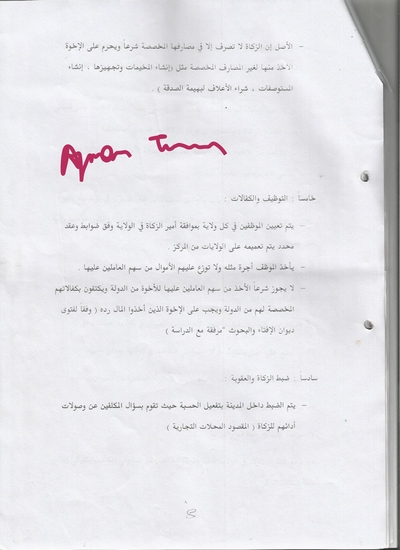 – الأصل إن الزكاة لا تصرف إلا في مصارفها المخصصة شرعاً ويحرم على الإخوة
الأخذ منها لغير المصارف المخصصة مثل (إنشاء المخيمات وتجهيزها ، إنشاء
المستوصفات ، شراء الأعلاف لبهيمة الصدقة ) .
خامساً : التوظيف والكفالات :
– يتم تعيين الموظفين في كل ولاية بموافقة أمير الزكاة في الولاية وفق ضوابط وعقد
محدد يتم تعميمه على الولايات من المركز
– يأخذ الموظف أجرة مثله ولا توزع عليهم الأموال من سهم العاملين عليها .
– لا يجوز شرعاً الأخذ من سهم العاملين عليها للأخوة من الدولة ويكتفون بكفالاتهم
المخصصة لهم من الدولة ويجب على الإخوة الذين أخذوا المال رده ( وفقاً لفتوى
ديوان الإفتاء والبحوث "مرفقة مع الدراسة )
سادساً : ضبط الزكاة والعقوبة :
– يتم الضبط داخل المدينة بتفعيل الحسبة حيث تقوم بسؤال المكلفين عن وصولات
أدائهم للزكاة ( المقصود المحلات التجارية )